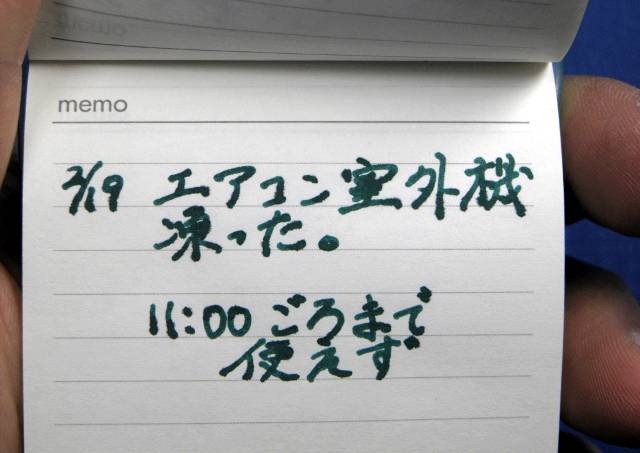 memo
2/19 エアコン室外機
凍った。
11:00ごろまで
使えず